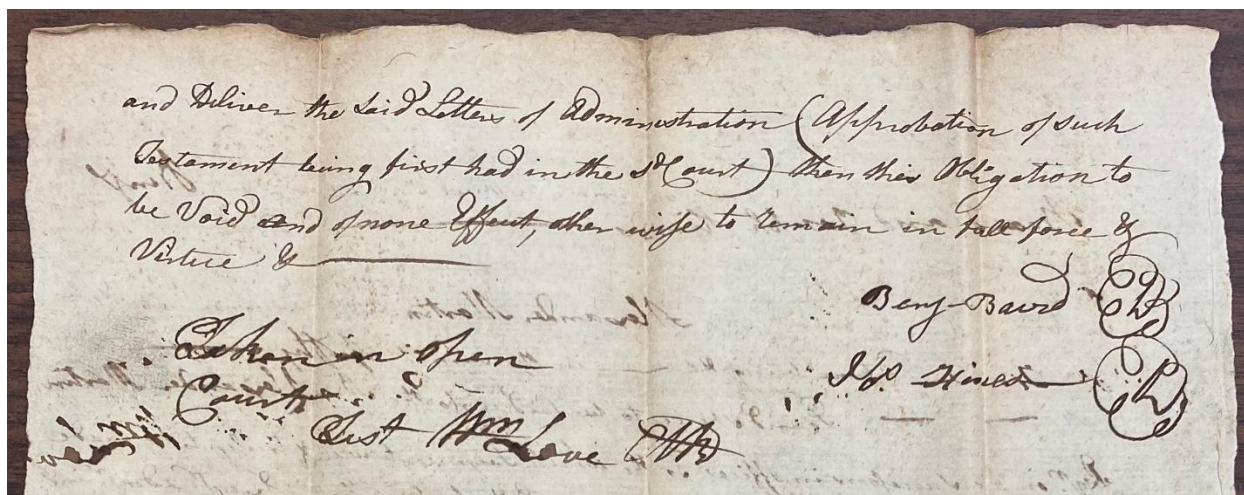 and Deliver the Said Letters of Administration (Approbation of such
Testament being first had in the Sd Court) then this Obligation to
be Void and of none Effect, other wise to remain in full force &
Virtue &
Benj Baird
Hines
Taken in open
Court
Test Wm Love